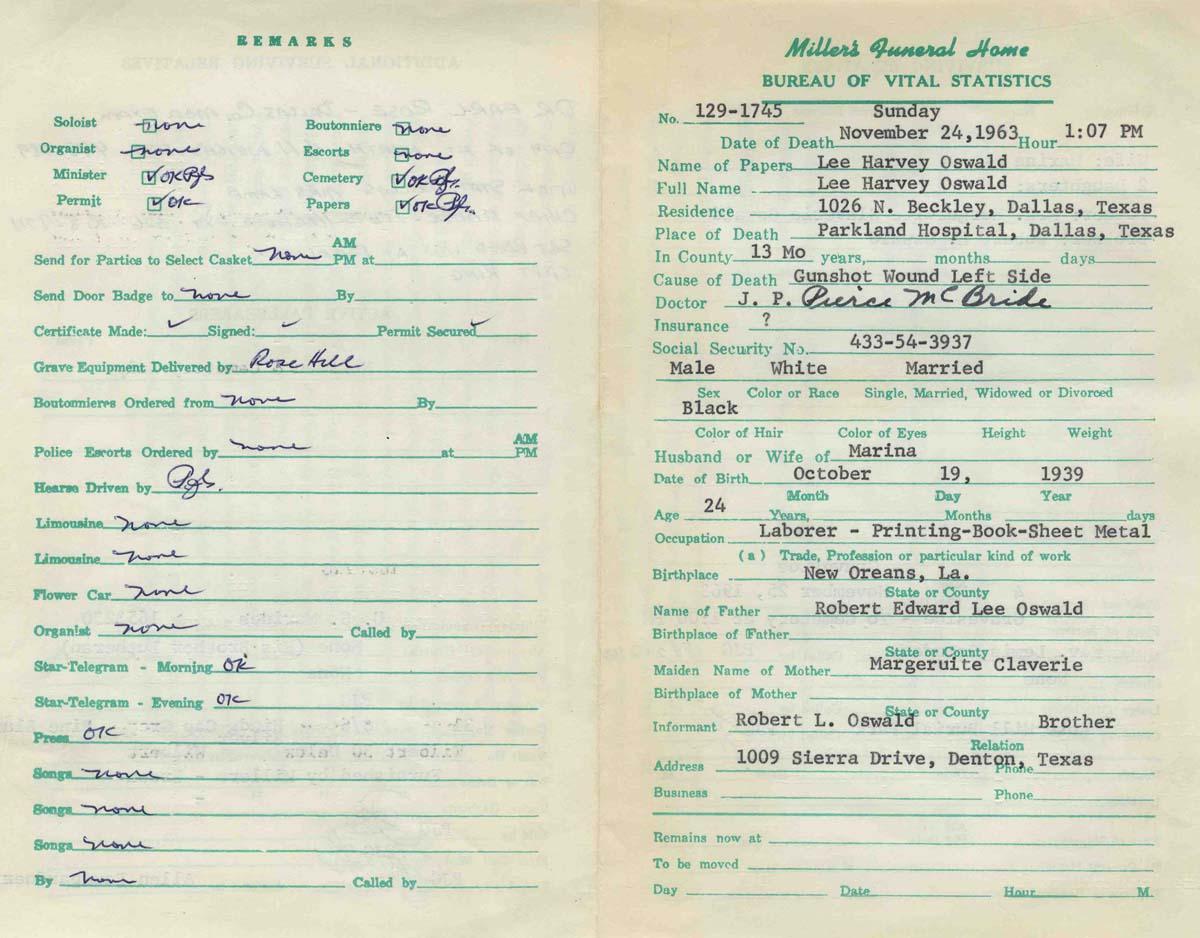 REMARKS
Soloist none Boutonniere none
Organist none Escorts none
Minister OK PJG Cemetery OK
Permit OK Papers OK
AM
Send for Parties to Select Casket none PM at
Send Door Badge to none By
Certificate Made: Signed: Permit Secured
Grave Equipment Delivered by Rose Hill
Boutonnieres Ordered from none By
AM
Police Escorts Ordered by none at PM
Hearse Driven by
Limousine none
Limousine none
Flower Car none
Organist none Called by
Star-Telegram - Morning OK
Star-Telegram - Evening OK
Press OK
Songs none
Songs none
Songs none
By none Called by
Miller's Funeral Home
BUREAU OF VITAL STATISTICS
No. 129-1745 Sunday
Date of Death November 24,1963 Hour 1:07 PM
Name of Papers Lee Harvey Oswald
Full Name Lee Harvey Oswald
Residence 1026 N. Beckley, Dallas, Texas
Place of Death Parkland Hospital, Dallas, Texas
In County 13 Mo years, months days
Cause of Death Gunshot Wound Left Side
Doctor J. P. Pierce McBride
Insurance ?
Social Security No. 433-54-3937
Male White Married
Sex Color or Race Single, Married, Widowed or Divorced
Black
Color of Hair Color of Eyes Height Weight
Husband or Wife of Marina
Date of Birth October 19, 1939
Month Day Year
Age 24 Years, Months days
Occupation Laborer - Printing-Book-Sheet Metal
(a) Trade, Profession or particular kind of work
Birthplace New Oreans, La.
State or County
Name of Father Robert Edward Lee Oswald
Birthplace of Father
State or County
Maiden Name of Mother Margeruite Claverie
Birthplace of Mother
State or County
Informant Robert L. Oswald Brother
Relation
Address 1009 Sierra Drive, Denton, Texas
Phone
Business Phone
Remains now at
To be moved
Day Date Hour M.